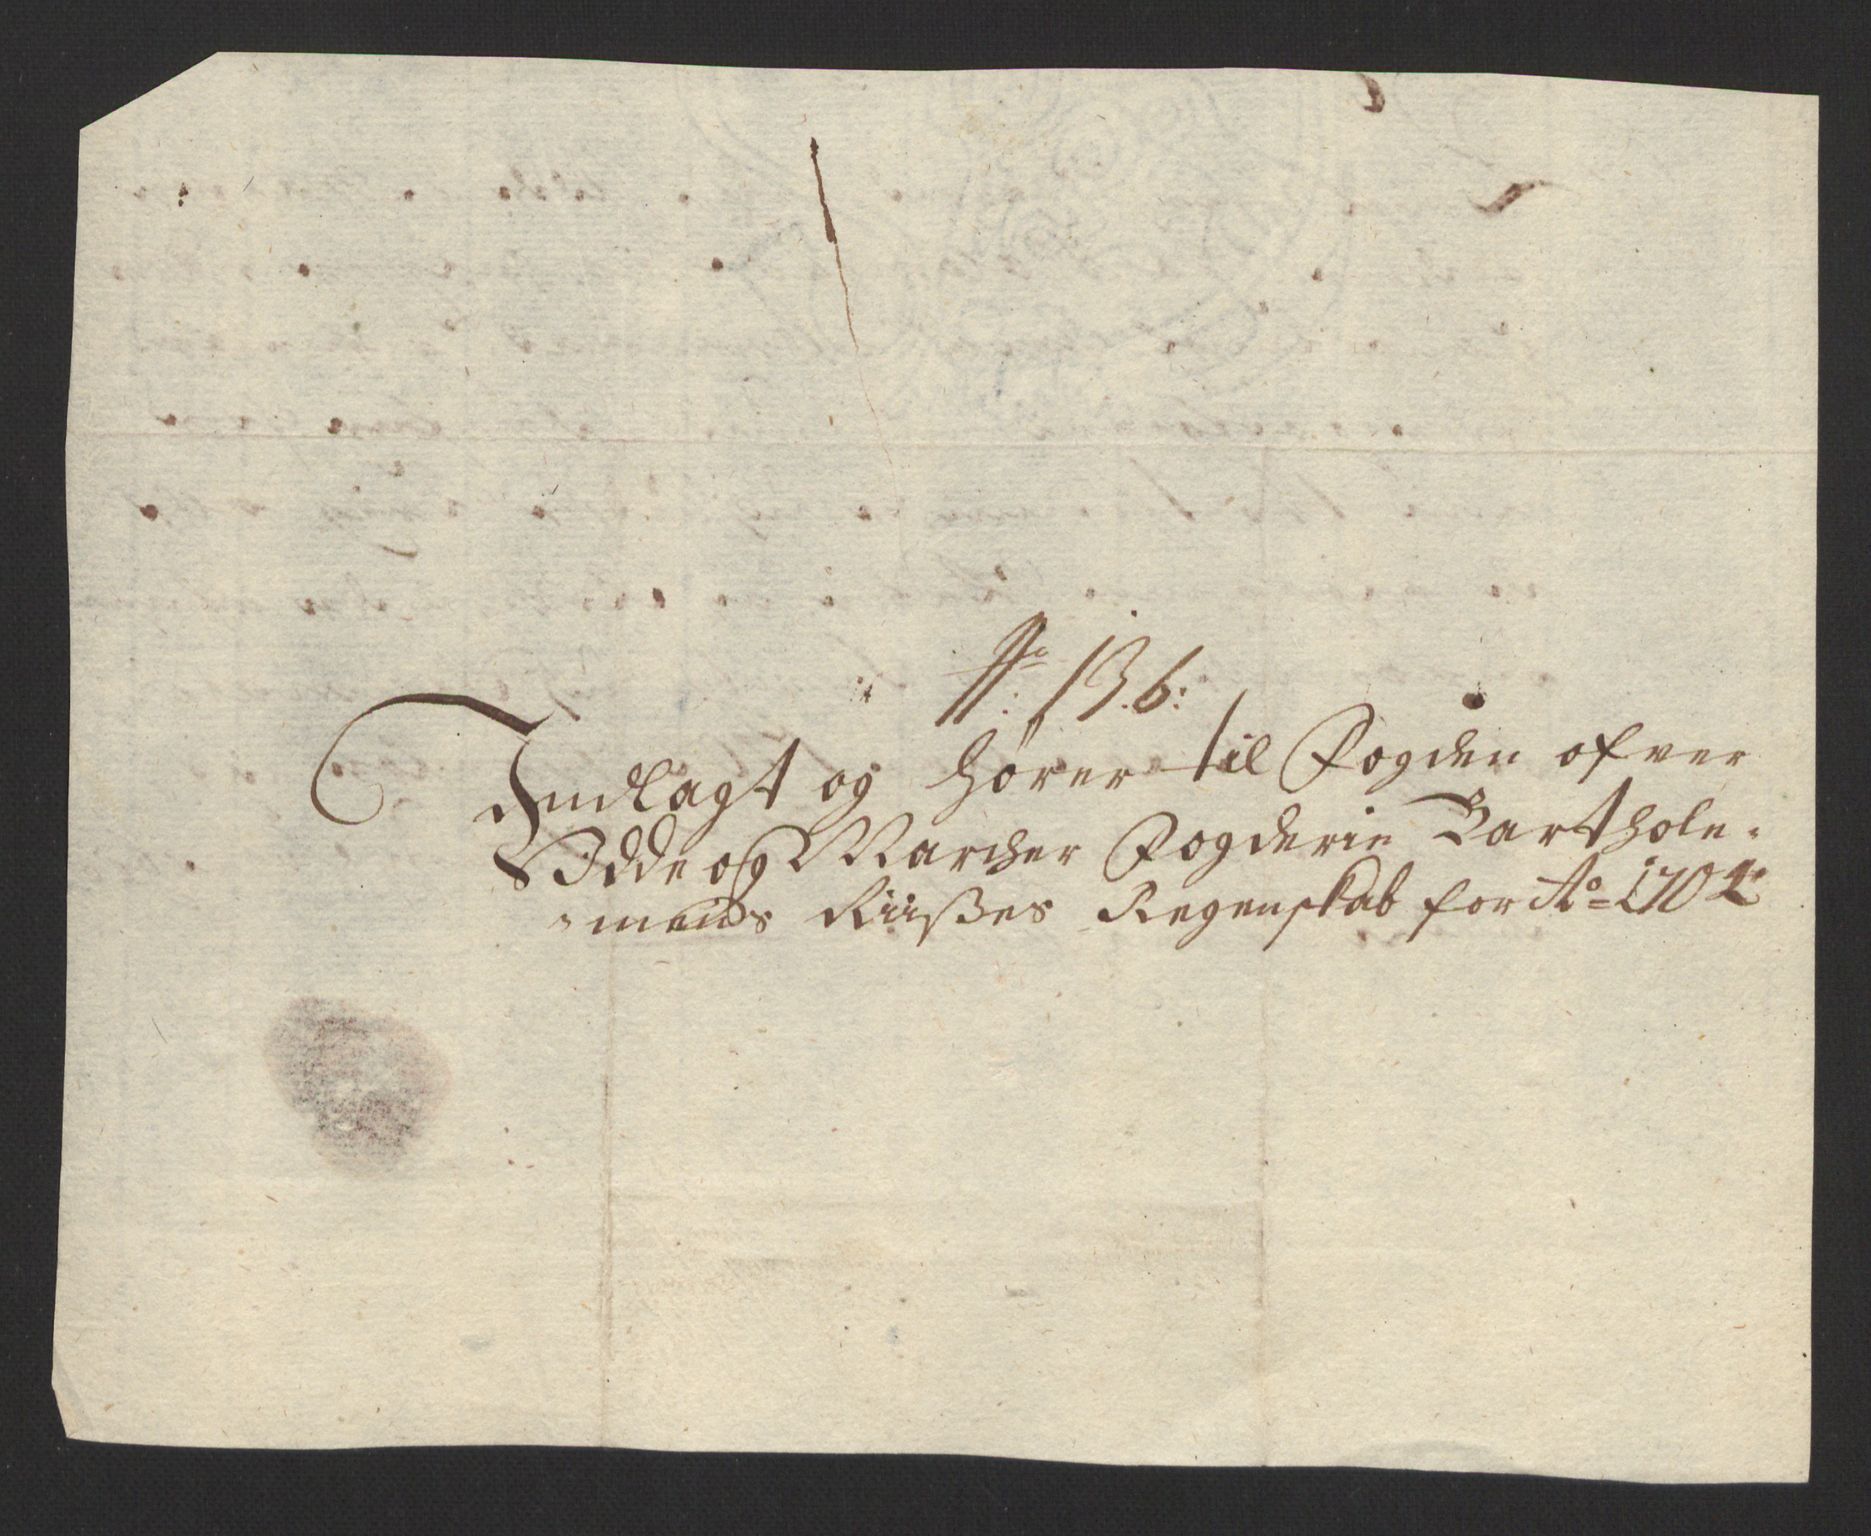 No: 136:
Indlagt og hører til Fogden ofver
Idde og Marcher Fogderie Barthole-
-meus Riisßes Regenskab for Ao 1704